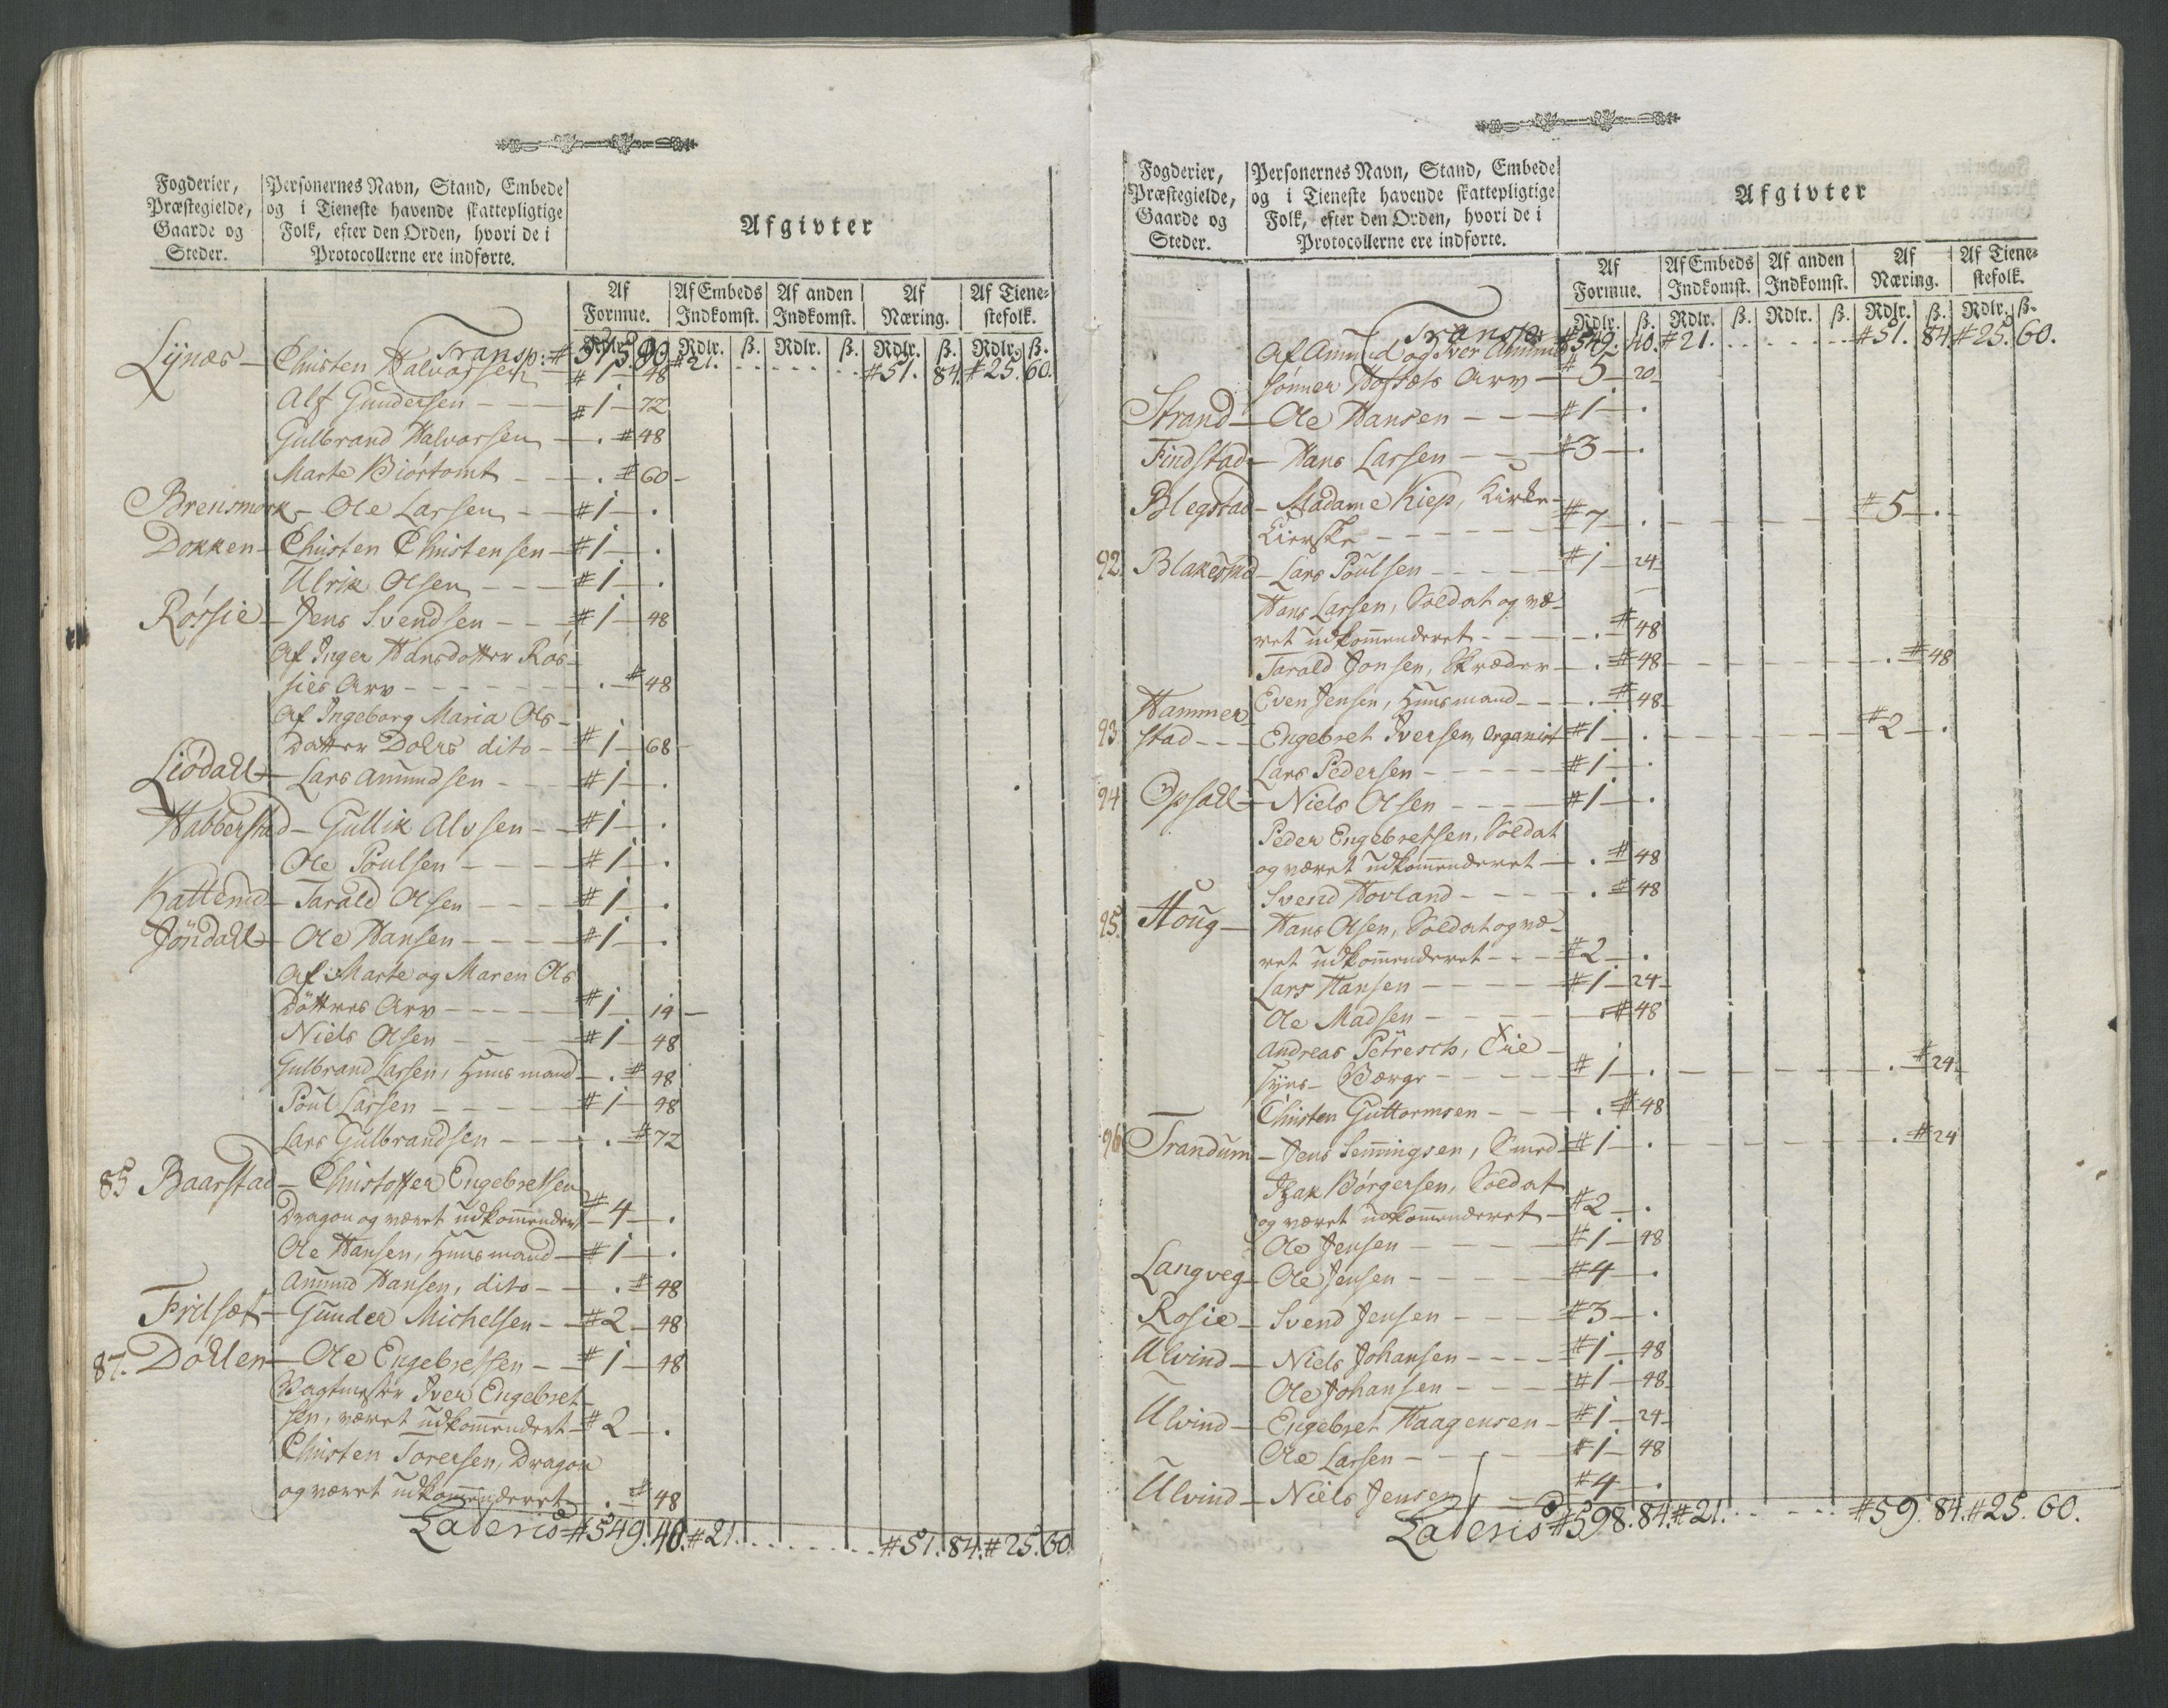 Fogderier,
Præstegielde,
Gaarde og
Steder.
Personernes Navn, Stand, Embede
og i Tieneste havende skattepligtige
Folk, efter den Orden, hvori de i
Protocollerne ere indførte.
Afgivter
Af Formue. Af Embeds Indkomst. Af anden Indkomst. Af Næring. Af Tienestefolk.
Rdlr. ß. Rdlr. ß. Rdlr. ß. Rdlr. ß. Rdlr. ß.
Transp: #21. #51. 84. #25. 60.
Lÿnæs - Christen Halvorsen - #1 - 48
Alf Gundersen - #1 - 72
Gulbrand Halvorsen - . #48
Marte Biørtomt - . #60 -
Brensmork - Ole Larsen - #1 - .
Dokken - Christen Christensen - #1 - .
Ulrik Olsen - #1 - .
Røssie - Jens Svendsen - #1 - 48
Af Inger Hansdotter Røs-
sies Arv - . #48
Af Ingeborg Maria Ols-
Datter Dølers dito - #1 - 68 -
Liødall - Lars Amundsen - #1 - .
Habberstad - Gullik Alvsen - #1 - .
Ole Poulsen - #1 - .
Kattenud - Tarald Olsen - #1 - .
Jøndall - Ole Hansen - #1 - .
Af Marte og Maren Ols
Døttres Arv - #1 - 14 -
Niels Olsen - #1 - 48
Gulbrand Larsen, Huusmand - . #48
Poul Larsen - #1 - 48
Lars Gulbrandsen - . #72
85 Baarstad - Christoffer Engebretsen
Dragon og været udkommendert - #4 - .
Ole Hansen, Huusmand - #1 - .
Amund Hansen, dito - . #48
Frilsæt - Gunder Michelsen - #2 - 48
87. Døllen - Ole Engebretsen - #1 - 48
Vagtmester Iver Engebret-
sen, været udkommendert - #2 - .
Christen Torersen, Dragon
og været udkommenderet - . #48
Lateris #549. 40. #21. #51. 84. #25. 60.
Fogderier,
Præstegielde,
Gaarde og
Steder.
Personernes Navn, Stand, Embede
og i Tieneste havende skattepligtige
Folk, efter den Orden, hvori de i
Protocollerne ere indførte.
Afgivter
Af Formue. Af Embeds Indkomst. Af anden Indkomst. Af Næring. Af Tienestefolk.
Rdlr. ß. Rdlr. ß. Rdlr. ß. Rdlr. ß. Rdlr. ß.
Transp: #549. 40. #21. #51. 84. #25. 60.
Af Amund og Iver Amund
sønner Arv - #5 - 20 -
Strand - Ole Hansen - #1 - .
Findstad - Hans Larsen - #3 - .
Blegstad - Madame Kiep, Kirke-
Eierske - #7 - . #5 - .
92. Blakestad - Lars Poulsen - #1 - 24
Hans Larsen, Soldat og væ-
ret udkommenderet - . #48
Tarald Jonsen, Skræder - . #48 - . #48
Hammer- Even Jensen, Huusmand - . #48 -
93 stad - Engebret Iversen, Organist #1 - . #2 - .
Lars Pedersen - #1 - .
94 Opsall - Niels Olsen - #1 - .
Peder Engebretsen, Soldat
og været udkommenderet - . #48
Svend Hovland - . #48
95. Houg - Hans Olsen, Soldat og væ-
ret udkommenderet - #2 - .
Lars Hansen - #1 - 24 -
Ole Madsen - . #48
Andreas Petresch,
#1 - . . #24
Christen Guttormsen - . #48
96 Trandum - Jens Semmingsen, Smed - #1 - . . #24
Isak Børgersen, Soldat
og været udkommenderet - #2 - .
Ole Jensen - #1 - 48
Langveg - Ole Jensen - #4 - .
Rosie - Svend Jensen - #3 - .
Ulvind - Niels Johansen - #1 - 48
Ole Johansen - #1 - 48 -
Ulvind - Engebret Haagensen - #1 - 24 -
Ole Larsen - #1 - 48
Ulvind - Niels Jensen - #4 - .
Lateris #598. 84. #21. #59. 84. #25. 60.